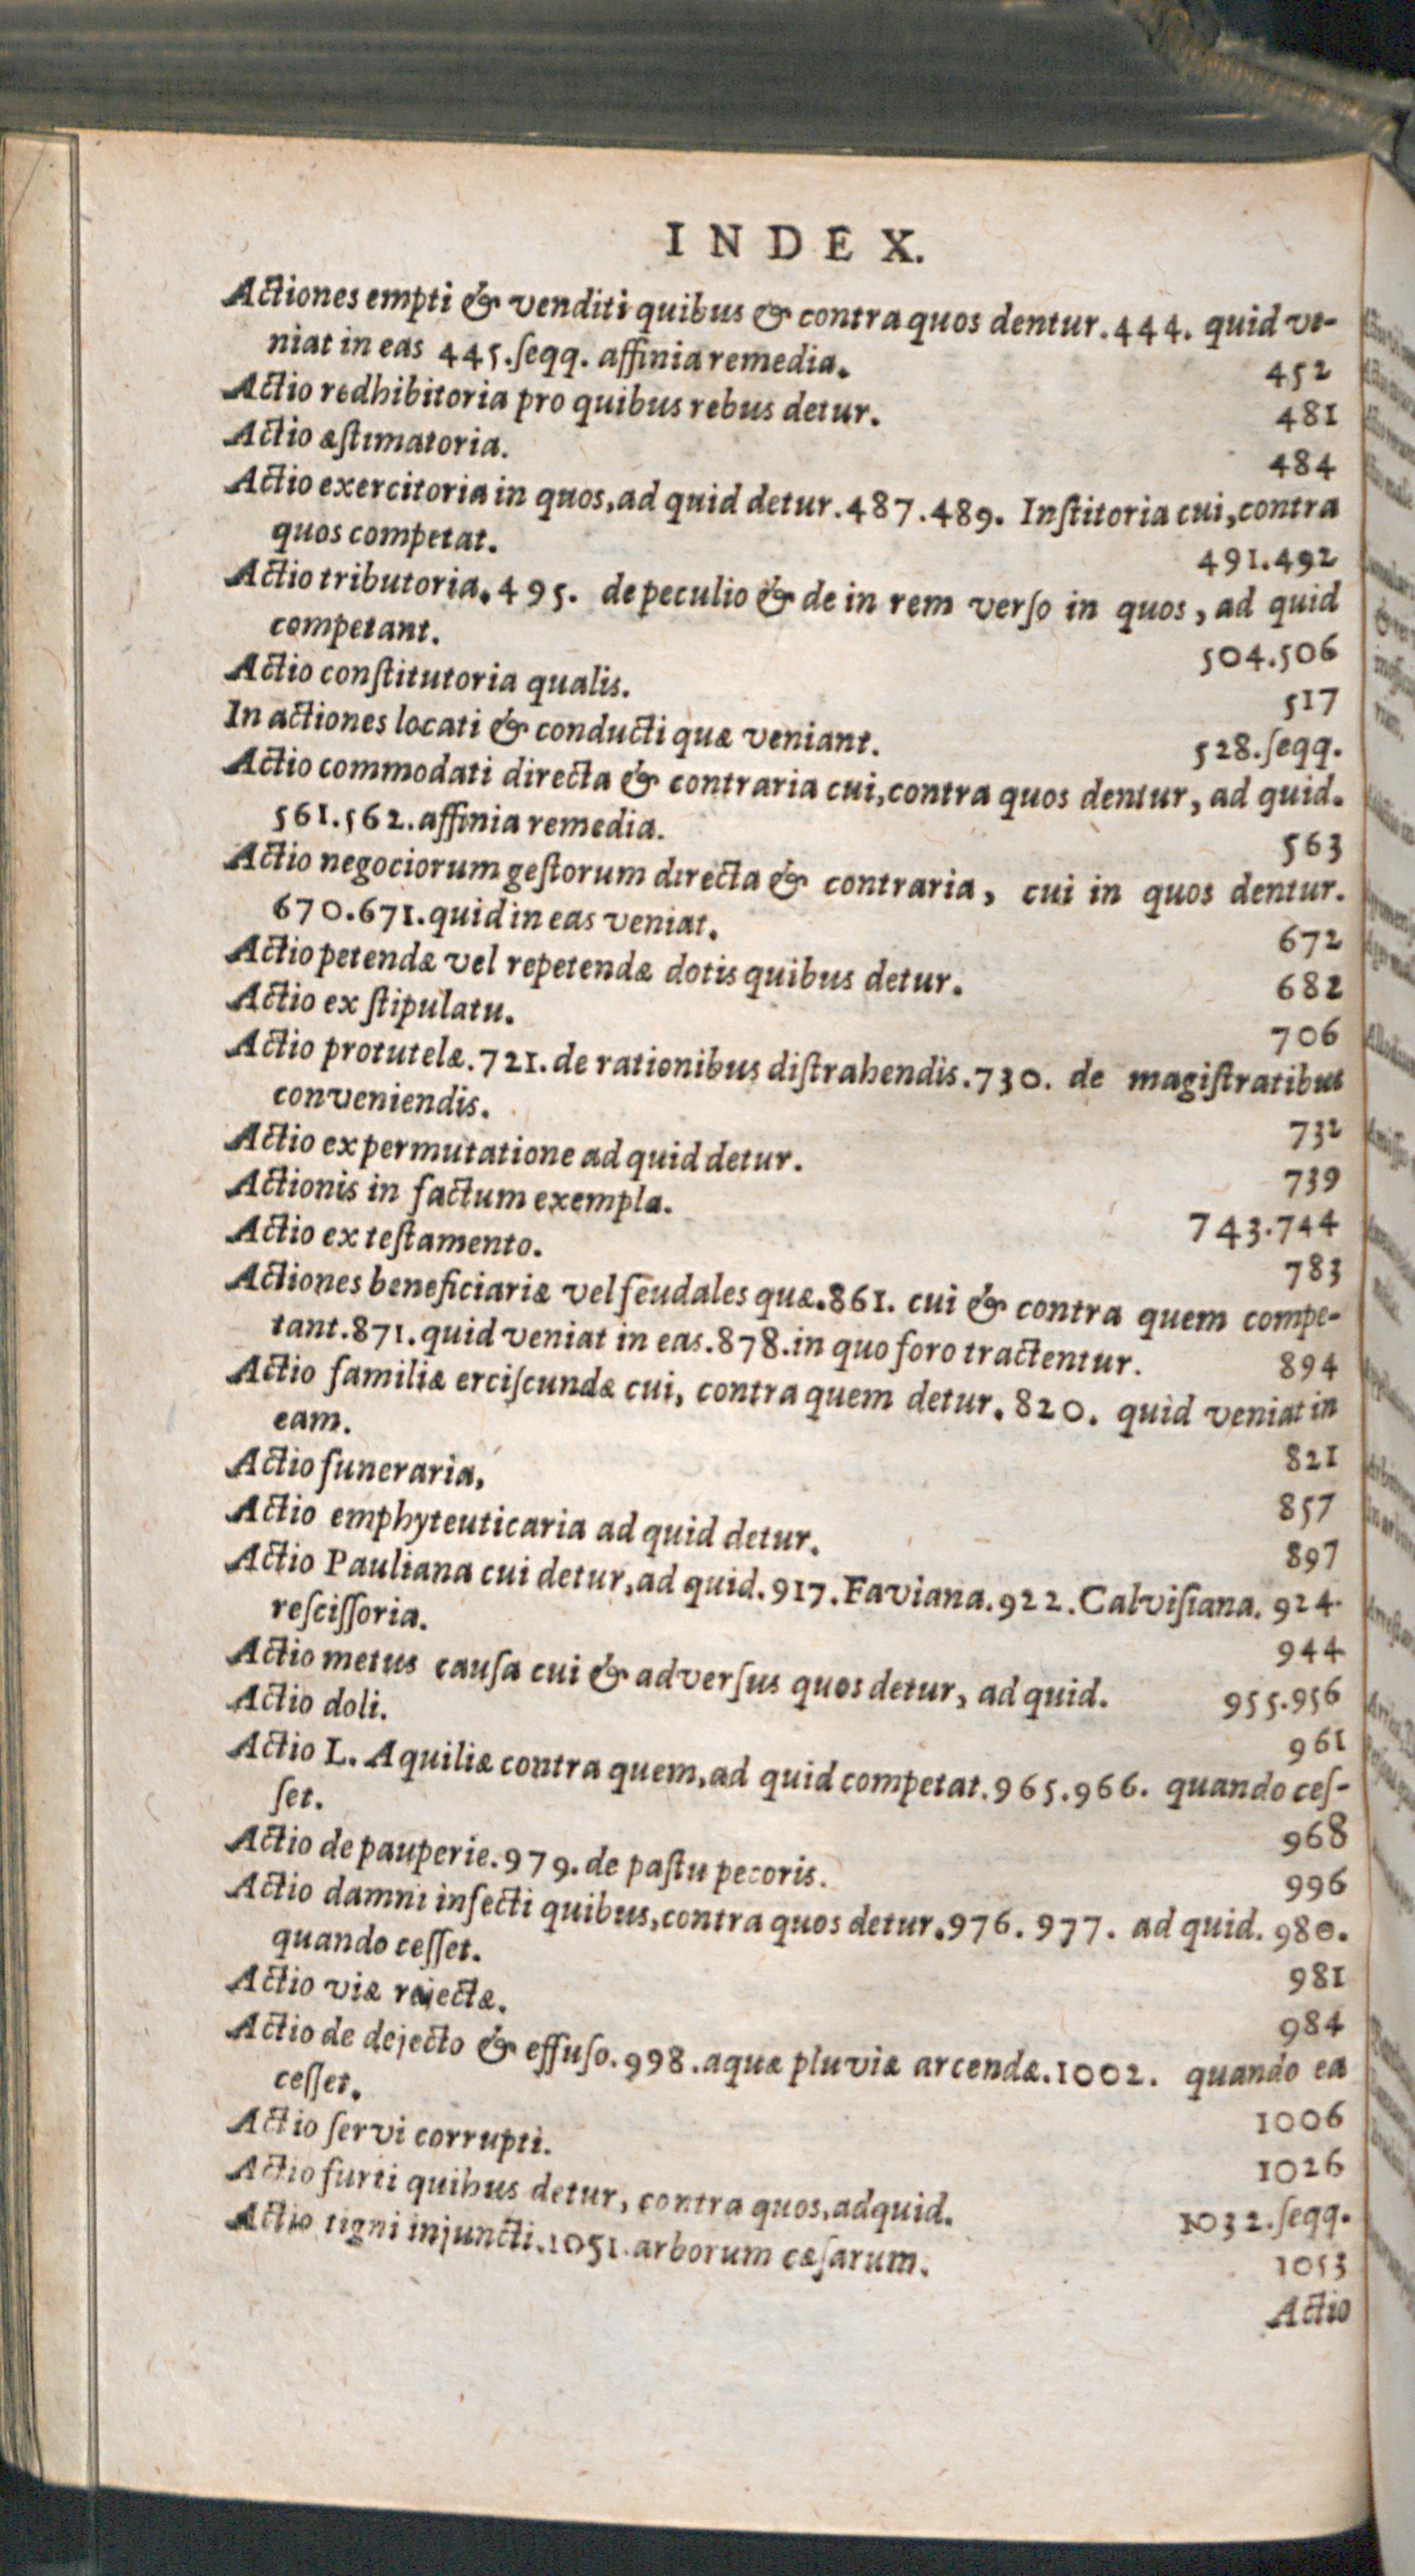 INDEX.
Actiones empti & venditi quibus & contra quos dentur. 444. quid ve-
niat in eas 445. ſeqq. affinia remedia. 452
Actio redhibitoria pro quibus rebus detur. 481
Actio æſtimatoria. 484
Actio exercitoria in quos, ad quid detur. 487. 489. Inſtitoria cui, contra
quos competat. 491. 492
Actio tributoria. 495. de peculio & de in rem verſo in quos, ad quid
competant. 504. 506
Actio conſtitutoria qualis. 517
In actiones locati & conducti quæ veniant. 528. ſeqq.
Actio commodati directa & contraria cui, contra quos dentur, ad quid.
561. 562. affinia remedia. 563
Actio negociorum geſtorum directa & contraria, cui in quos dentur.
670. 671. quid in eas veniat. 672
Actio petendæ vel repetendæ dotis quibus detur. 682
Actio ex ſtipulatu. 706
Actio protutelæ. 721. de rationibus diſtrahendis. 730. de magiſtratibus
conveniendis. 732
Actio ex permutatione ad quid detur. 739
Actionis in factum exempla. 743. 744
Actio ex teſtamento. 783
Actiones beneficiariæ vel feudales quæ. 861. cui & contra quem compe-
tant. 871. quid veniat in eas. 878. in quo foro tractentur. 894
Actio familiæ erciſcundæ cui, contra quem detur. 820. quid veniat in
eam. 821
Actio funeraria, 857
Actio emphyteuticaria ad quid detur. 897
Actio Pauliana cui detur, ad quid. 917. Faviana. 922. Calviſiana. 924.
reſciſſoria. 944
Actio metus cauſa cui & adverſus quos detur, ad quid. 955. 956
Actio doli. 961
Actio L. Aquiliæ contra quem, ad quid competat. 965. 966. quando ceſ-
ſet. 968
Actio de pauperie. 979. de paſtu pecoris. 996
Actio damni infecti quibus, contra quos detur. 976. 977. ad quid. 980.
quando ceſſet. 981
Actio viæ rejectæ. 984
Actio de dejecto & effuſo. 998. aquæ pluviæ arcendæ. 1002. quando ea
ceſſet. 1006
Actio ſervi corrupti. 1026
Actio furti quibus detur, contra quos, ad quid. 1032. ſeqq.
Actio tigni injuncti. 1051. arborum cæſarum. 1053
Actio